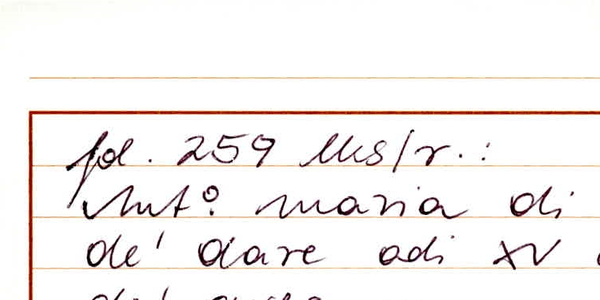 fol. 259 Ms/r.:
Ant.º maria di
de' dare adi XV